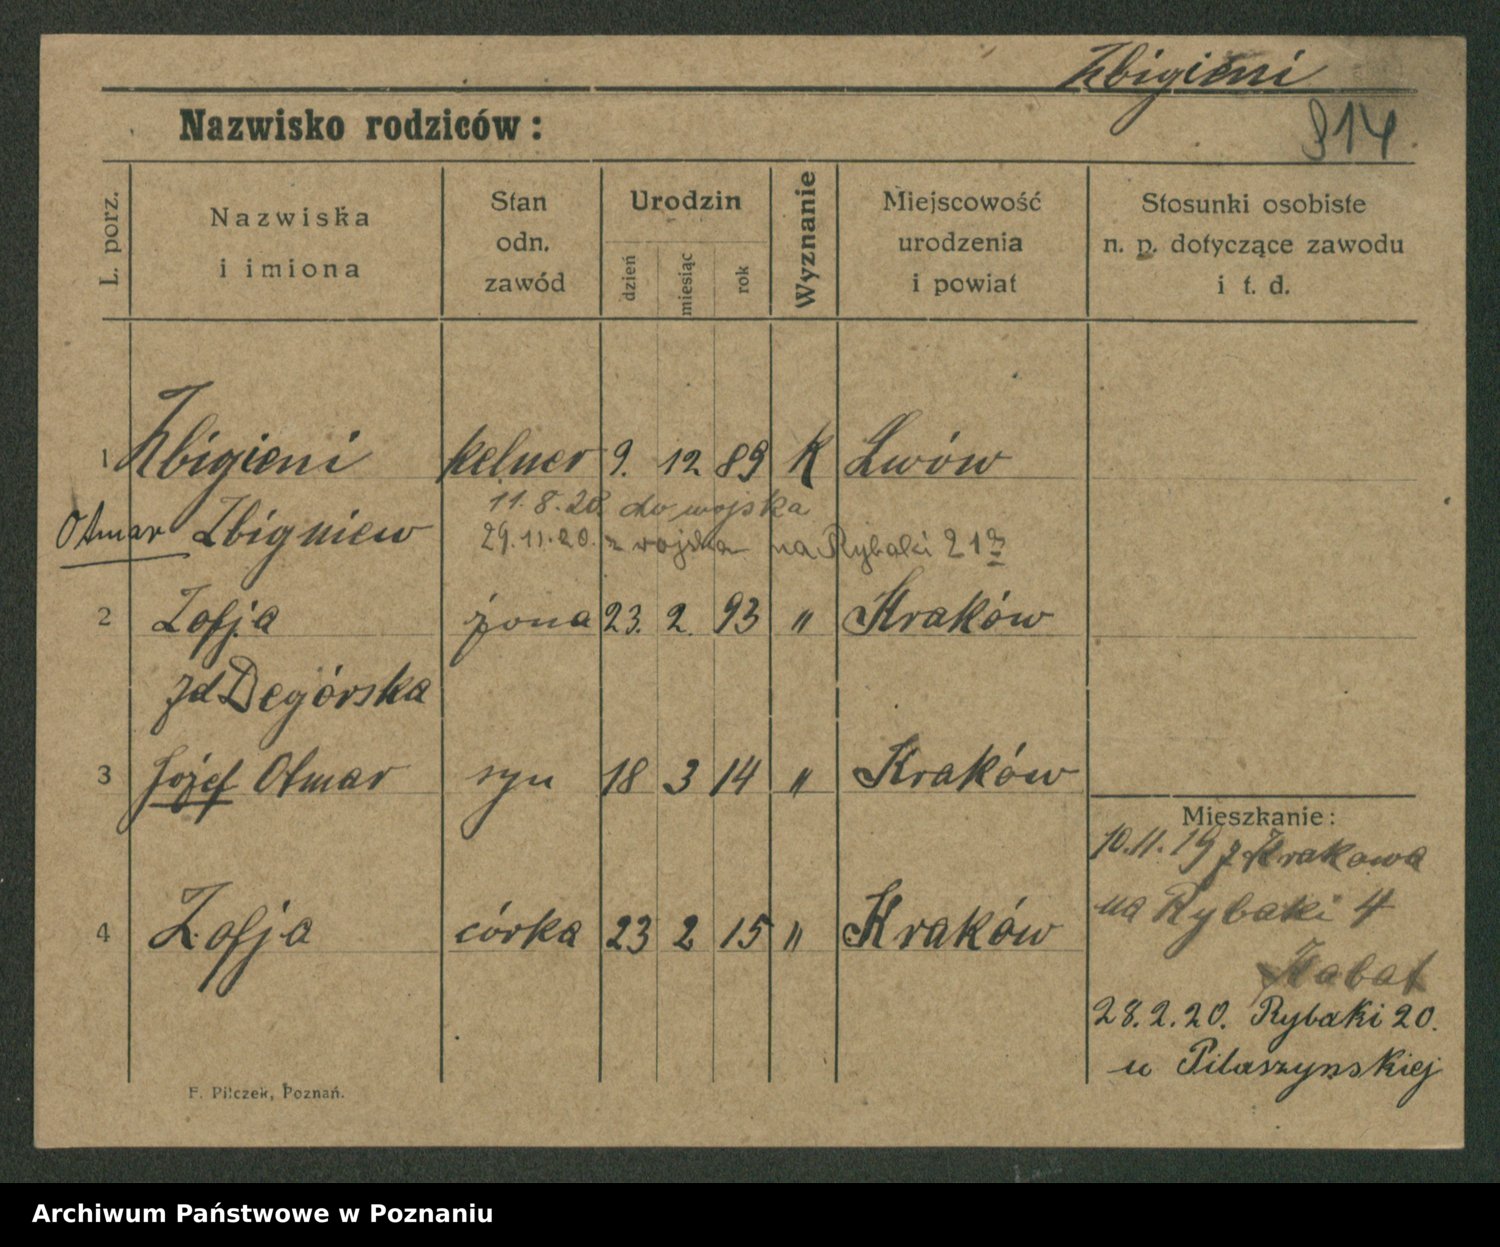 Zbigieni
Nazwisko rodziców:
914.
L. porz.
Nazwiska
i imiona
Stan
odn.
zawód
Urodzin
dzień
miesiąc
rok
Wyznanie
Miejscowość
urodzenia
i powiat
Stosunki osobiste
n. p. dotyczące zawodu
i t. d.
1 Zbigieni kelner 9. 12 89 K Lwów
11.8.20. do wojska
Otmar Zbigniew
29.11.20. z wojska na Rybaki 21
2 Zofja żona 23. 2. 93 " Kraków
zd Degórska
3 Józef Otmar syn 18 3 14 " Kraków
Mieszkanie:
10.11.19 z Krakowa
na Rybaki 4
4 Zofja córka 23 2 15 " Kraków
Kabat
28.2.20. Rybaki 20.
u Pilaszynskiej
F. Pilczek, Poznań.
Archiwum Państwowe w Poznaniu